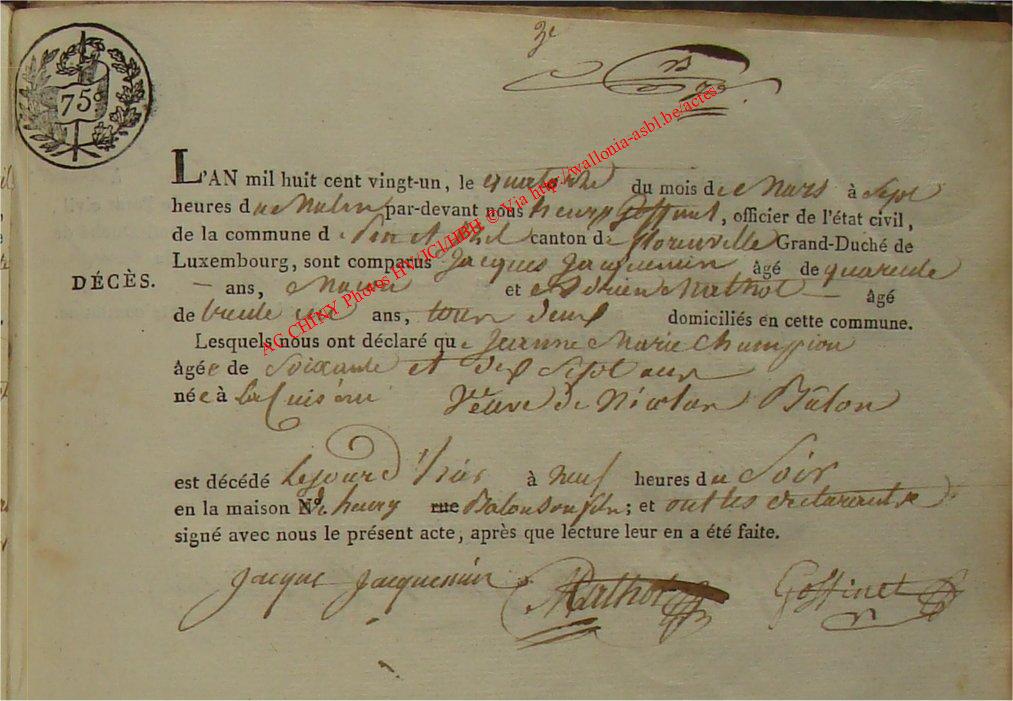 3e
75c
L'AN mil huit cent vingt-un, le quatorze du mois de Mars à Sept
heures du Matin par-devant nous henry Goffinet, officier de l'état civil,
de la commune d canton de florenville Grand-Duché de
Luxembourg, sont comparus Jacques Jacquemin âgé de quarante
DÉCÈS.
— ans, Maçon et Adrien Mathot — âgé
de trente ans, tous deux domiciliés en cette commune.
Lesquels nous ont déclaré que Jeanne Marie Champion
âgée de Soixante et dix Sept ans
née à La Cuisine Veuve de Nicolas Bâlon
est décédé le jour d'hier à neuf heures du Soir
en la maison N.º de henry rue Balon son fils; et ont les déclarants
signé avec nous le présent acte, après que lecture leur en a été faite.
Jacque Jacquemin Mathot Goffinet
AG CHINY Photos HV/JCI/HBH © Via http://wallonia-asbl.be/actes